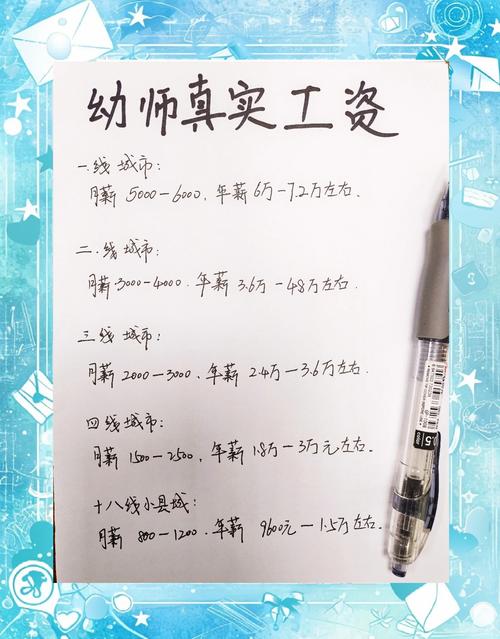 幼师真实工资
一线城市:
月薪 5000-6000、年薪 6万-7.2万左右.
二.线城市:
月薪 3000-4000、年薪 3.6万-48万左右.
三线城市:
月薪 2000-3000、年薪 2.4万-3.6万左右.
四线城市:
月薪 1500-2500、年薪 1.8万-3万元左右.
十八线小县城:
月薪 800-1200、年薪 9600元-1.5万左右.